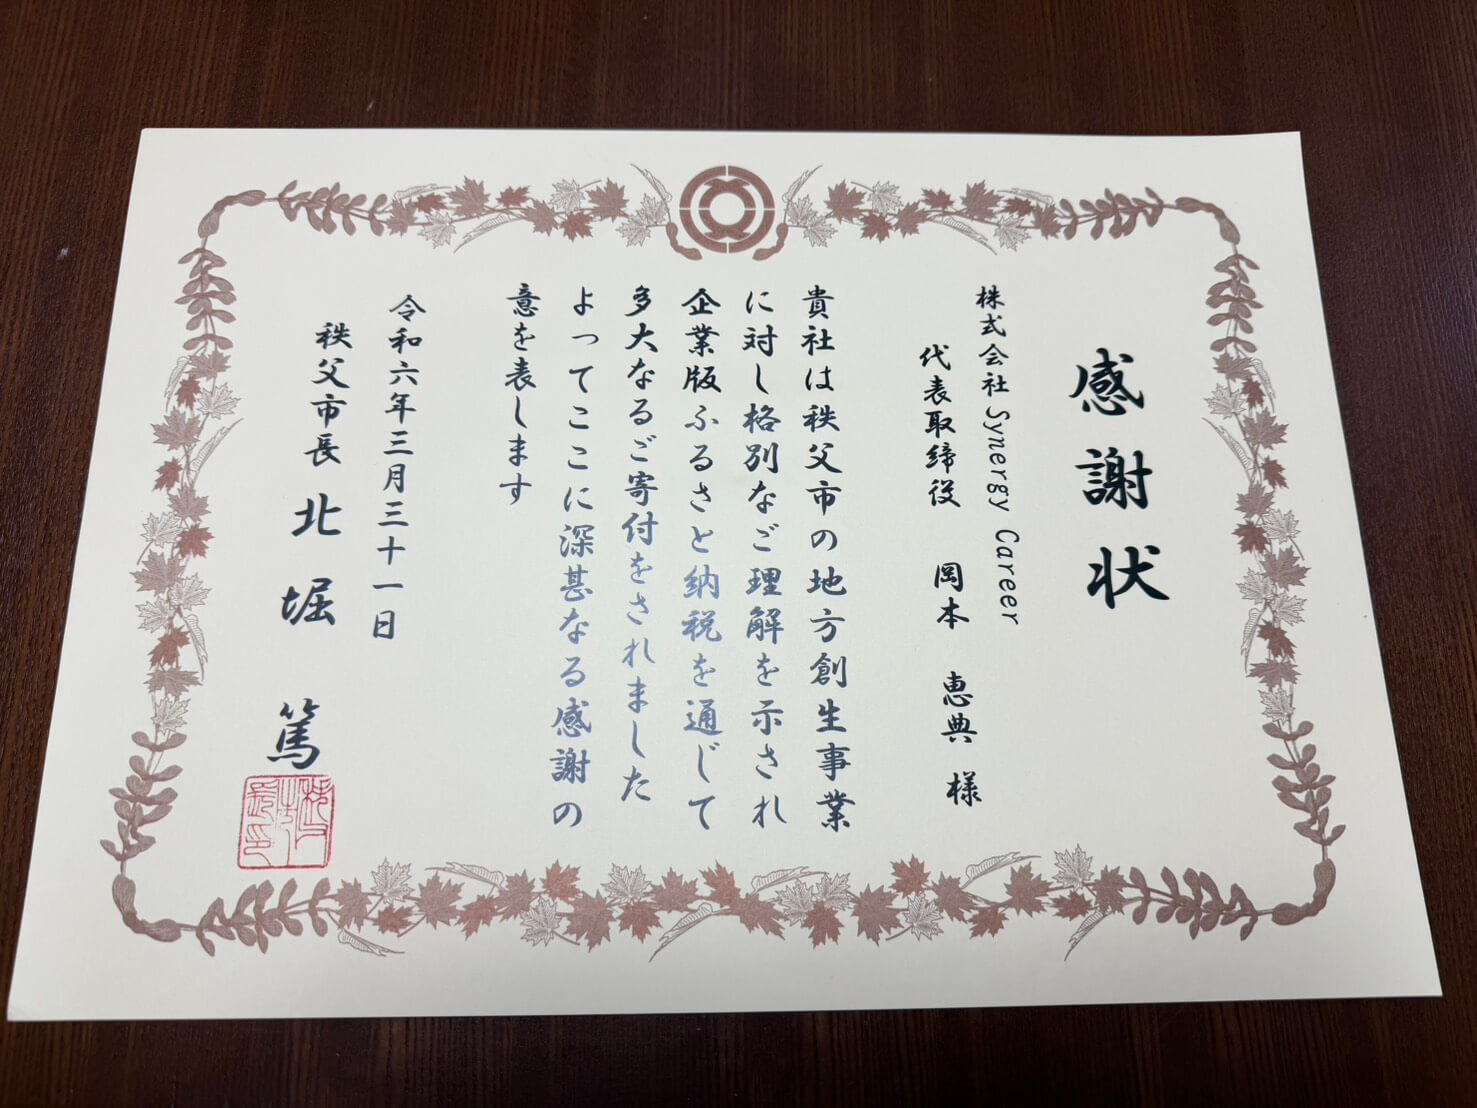 感謝状
株式会社 Synergy Career
代表取締役 岡本 恵典 様
貴社は秩父市の地方創生事業
に対し格別なご理解を示され
企業版ふるさと納税を通じて
多大なるご寄付をされました
よってここに深甚なる感謝の
意を表します
令和六年三月三十一日
秩父市長 北堀 篤